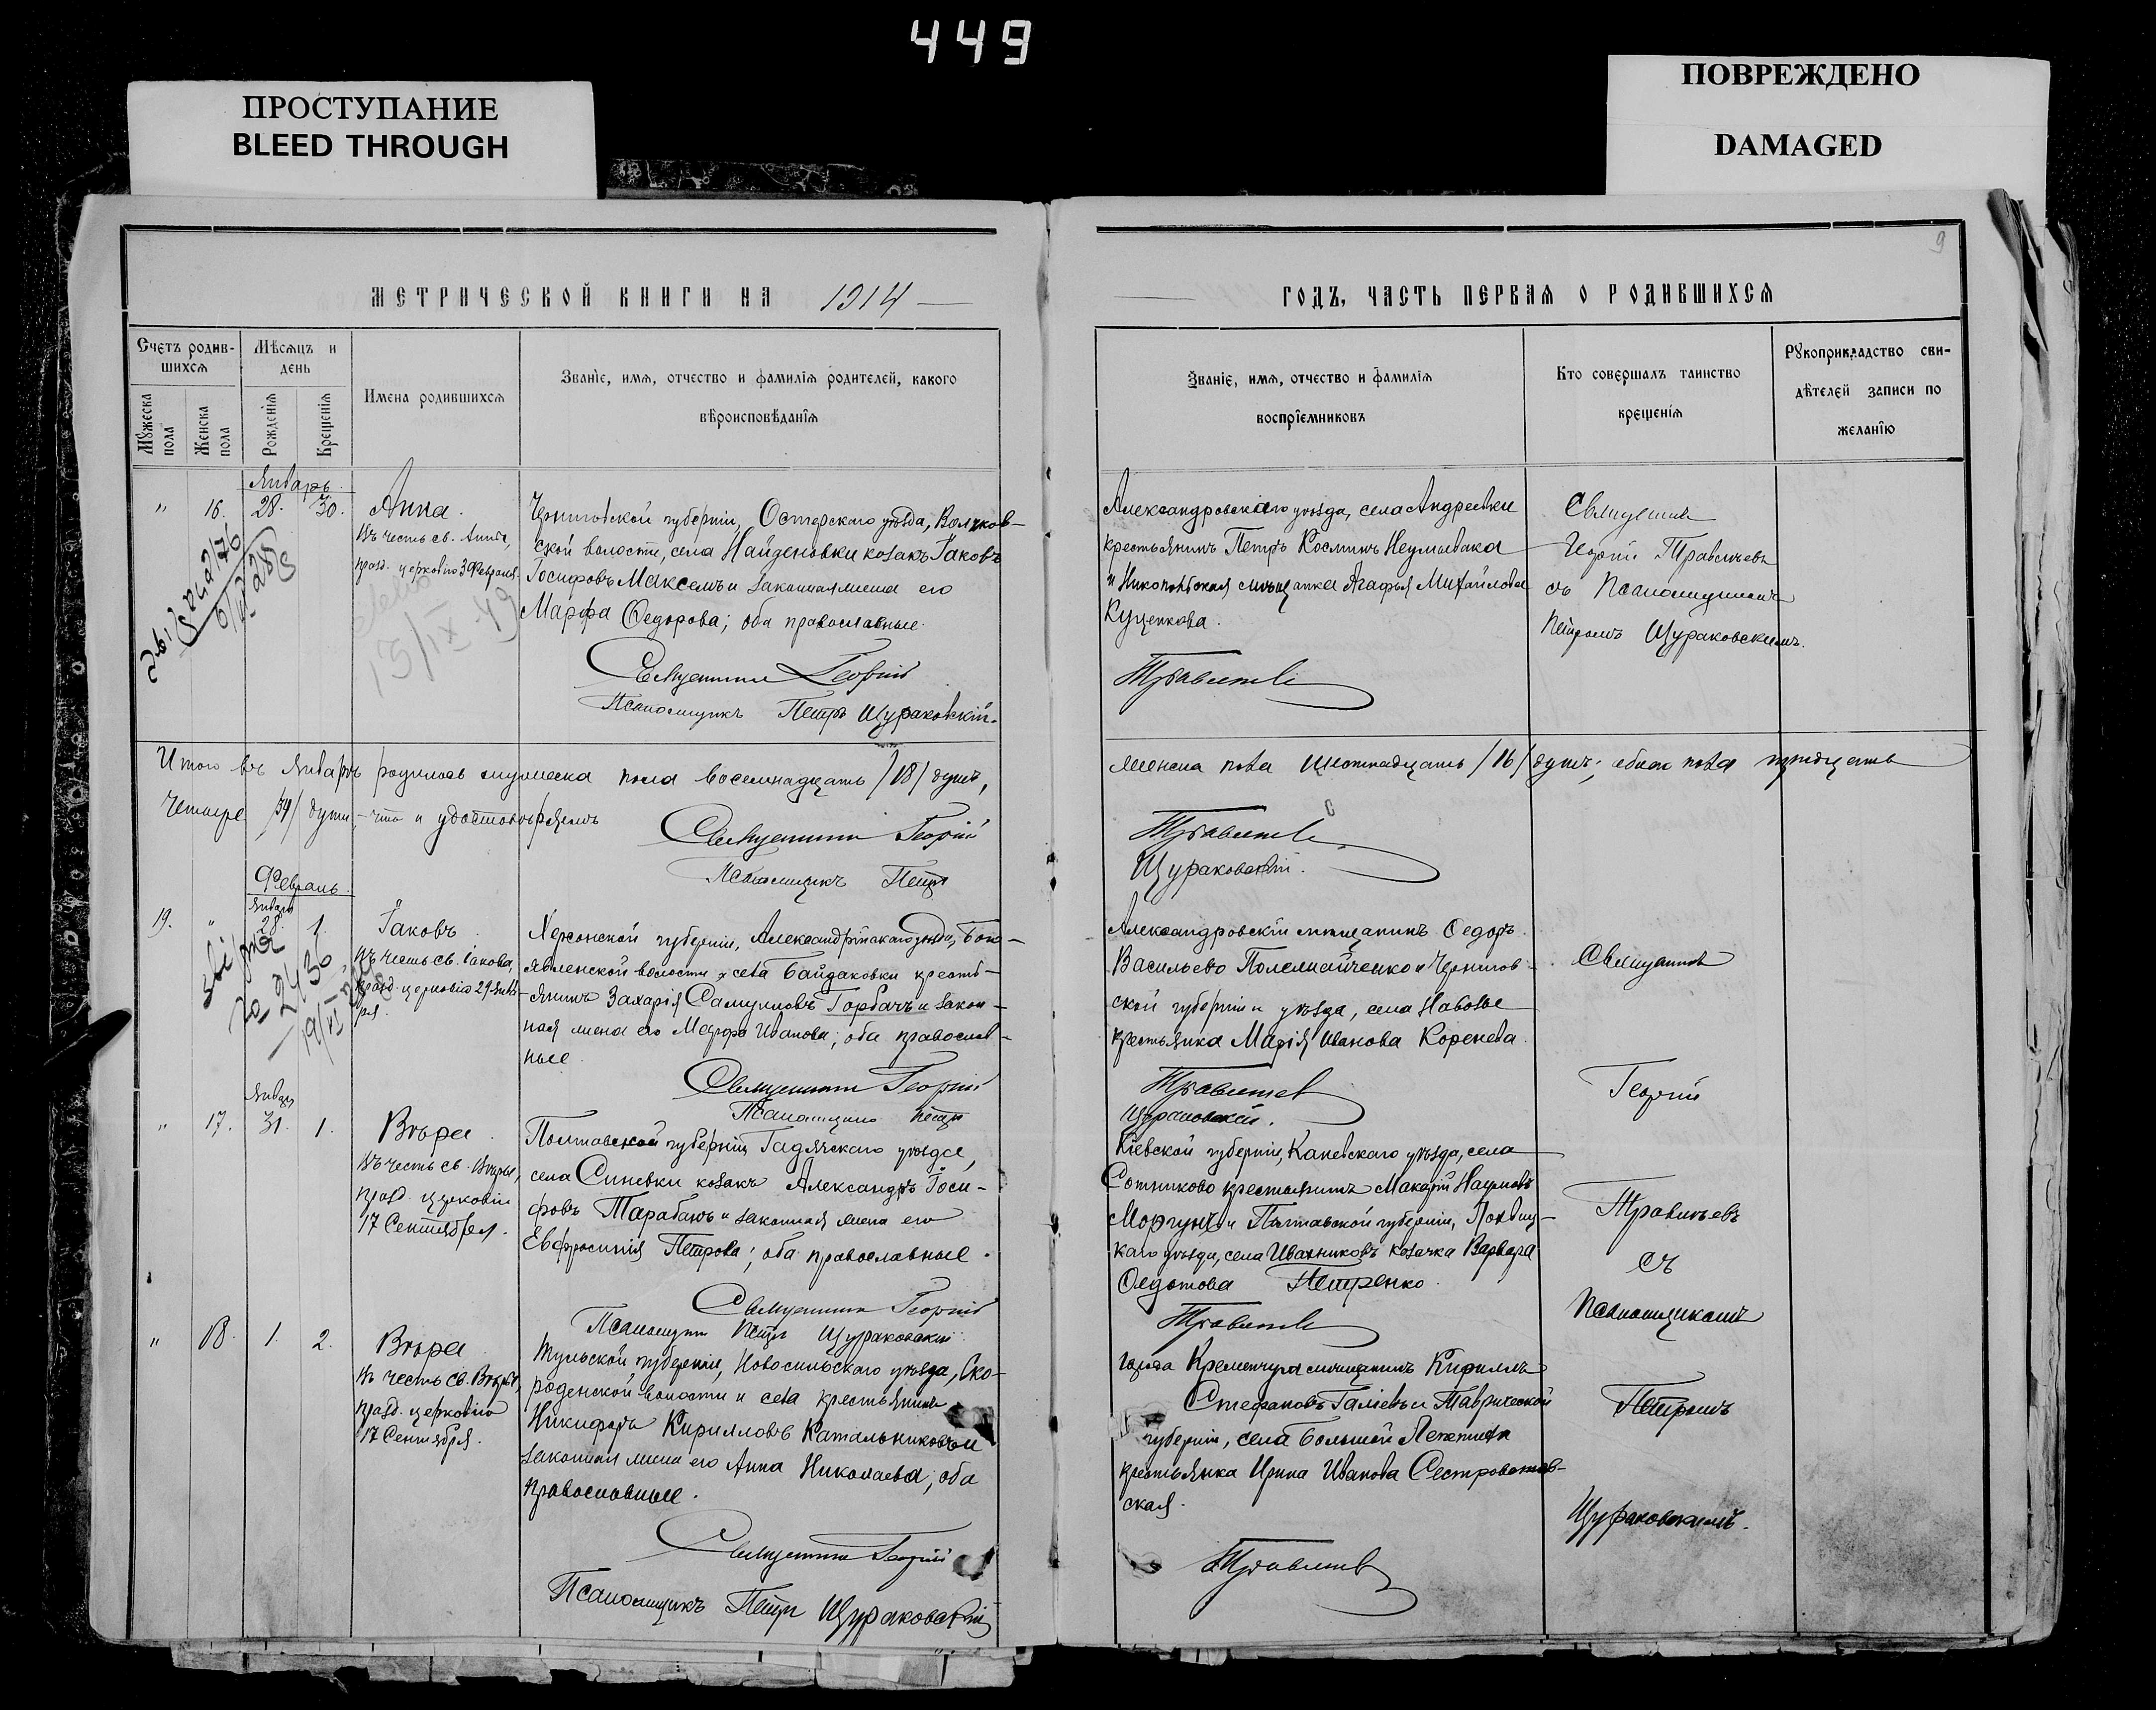 449
ПРОСТУПАНИЕ
BLEED THROUGH
ПОВРЕЖДЕНО
DAMAGED
МЕТРИЧЕСКОЙ КНИГИ НА 1914
Счетъ родив-
шихся
Мѣсяцъ и
день
Мужеска
пола
Женска
пола
Рожденія
Крещенія
Имена родившихся
Званіе, имя, отчество и фамилія родителей, какого
вѣроисповѣданія
Январь
" 16. 28. 30.
Анна.
Въ честь св. Анны,
празд. церковію 3 Февраля.
15/IX 49
Черниговской губерніи, Остерскаго уѣзда,
ской волости, села Найденовки козакъ Іаковъ
Іосифовъ Максемъ и законная жена его
Марфа Ѳедорова; оба православные.
Священникъ Георгій
Псаломщикъ Петръ Щураковскій.
Итого въ Январѣ родилось мужеска пола восемнадцать /18/ душъ,
Четыре /34/ души, что и удостовѣряемъ
Священникъ Георгій
Псаломщикъ Петръ
Февраль.
Января
19. " 28. 1.
Іаковъ.
Въ честь св. Іакова,
празд. церковію 29 Янва-
ря.
Херсонской губерніи, Александрійскаго уѣзда, Бого-
явленской волости и села Байдаковки кресть-
янинъ Захарія Самуиловъ Горбачъ и закон-
ная жена его Марфа Иванова; оба православ-
ные.
Священникъ Георгій
Псаломщикъ Петръ
Января
" 17. 31. 1.
Вѣра.
Въ честь св. Вѣры,
празд. церковію
17 Сентября.
Полтавской губерніи, Гадячскаго уѣзда,
села Синевки козакъ Александръ Іоси-
фовъ Тарабанъ и законная жена его
Евфросинія Петрова; оба православные.
Священникъ Георгій
Псаломщикъ Петръ Щураковскій.
" 18. 1. 2.
Вѣра.
Въ честь св. Вѣры,
празд. церковію
17 Сентября.
Тульской губерніи, Новосильскаго уѣзда, Ско-
роденской волости и села крестьянинъ
Никифоръ Кирилловъ Катальниковъ и
законная жена его Анна Николаева; оба
православные.
Священникъ Георгій
Псаломщикъ Петръ Щураковскій
9
ГОДЪ, ЧАСТЬ ПЕРВАЯ О РОДИВШИХСЯ
Званіе, имя, отчество и фамилія
воспріемниковъ
Кто совершалъ таинство
крещенія
Рукоприкладство сви-
дѣтелей записи по
желанію
Александровскаго уѣзда, села Андреевки
крестьянинъ Петръ Косминъ Неумывака
и Никопольская мѣщанка Агафья Михайлова
Куценкова.
Травичевъ
Священникъ
Георгій Травичевъ
съ Псаломщикомъ
Петромъ Щураковскимъ.
женска пола шестнадцать /16/ душъ; обоего пола тридцать
Травичевъ
Щураковскій.
Александровскій мѣщанинъ Ѳедоръ
Васильевъ Полежайченко и Чернигов-
ской губерніи и уѣзда, села Навозье
крестьянка Марія Иванова Коренева.
Травичевъ
Щураковскій.
Кіевской губерніи, Каневскаго уѣзда, села
Сотниково крестьянинъ Макарій Наумовъ
Моргунъ и Полтавской губерніи, Лохвиц-
каго уѣзда, села Иванниковъ козачка Варвара
Ѳедотова Петренко.
Травичевъ
города Кременчуга мѣщанинъ Кириллъ
Стефановъ Галіевъ и Таврической
губерніи, села Большой Лепатихи
крестьянка Ирина Иванова
ская.
Травичевъ
Священникъ
Георгій
Травичевъ
съ
Псаломщикомъ
Петромъ
Щураковскимъ.